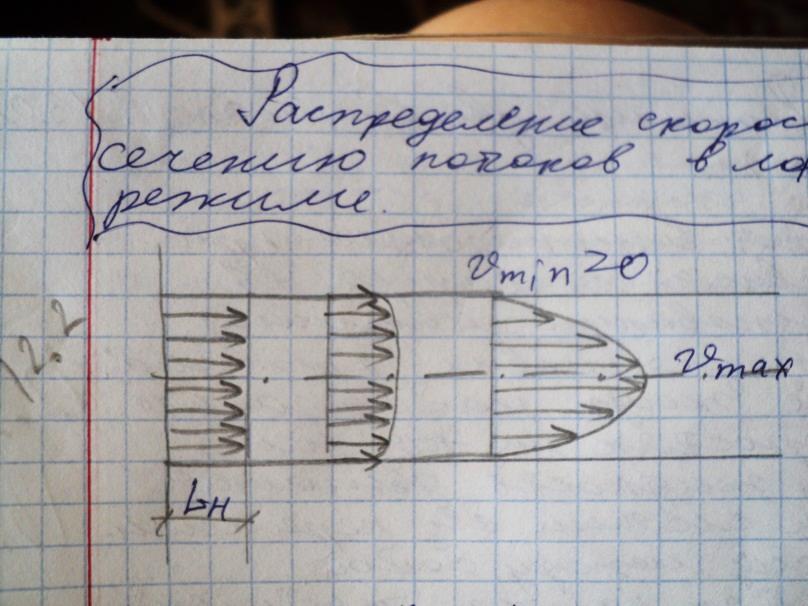 Распределение скорос
сечению потоков в ла
режиме.
12.2
vmin=0
vmax
Lн